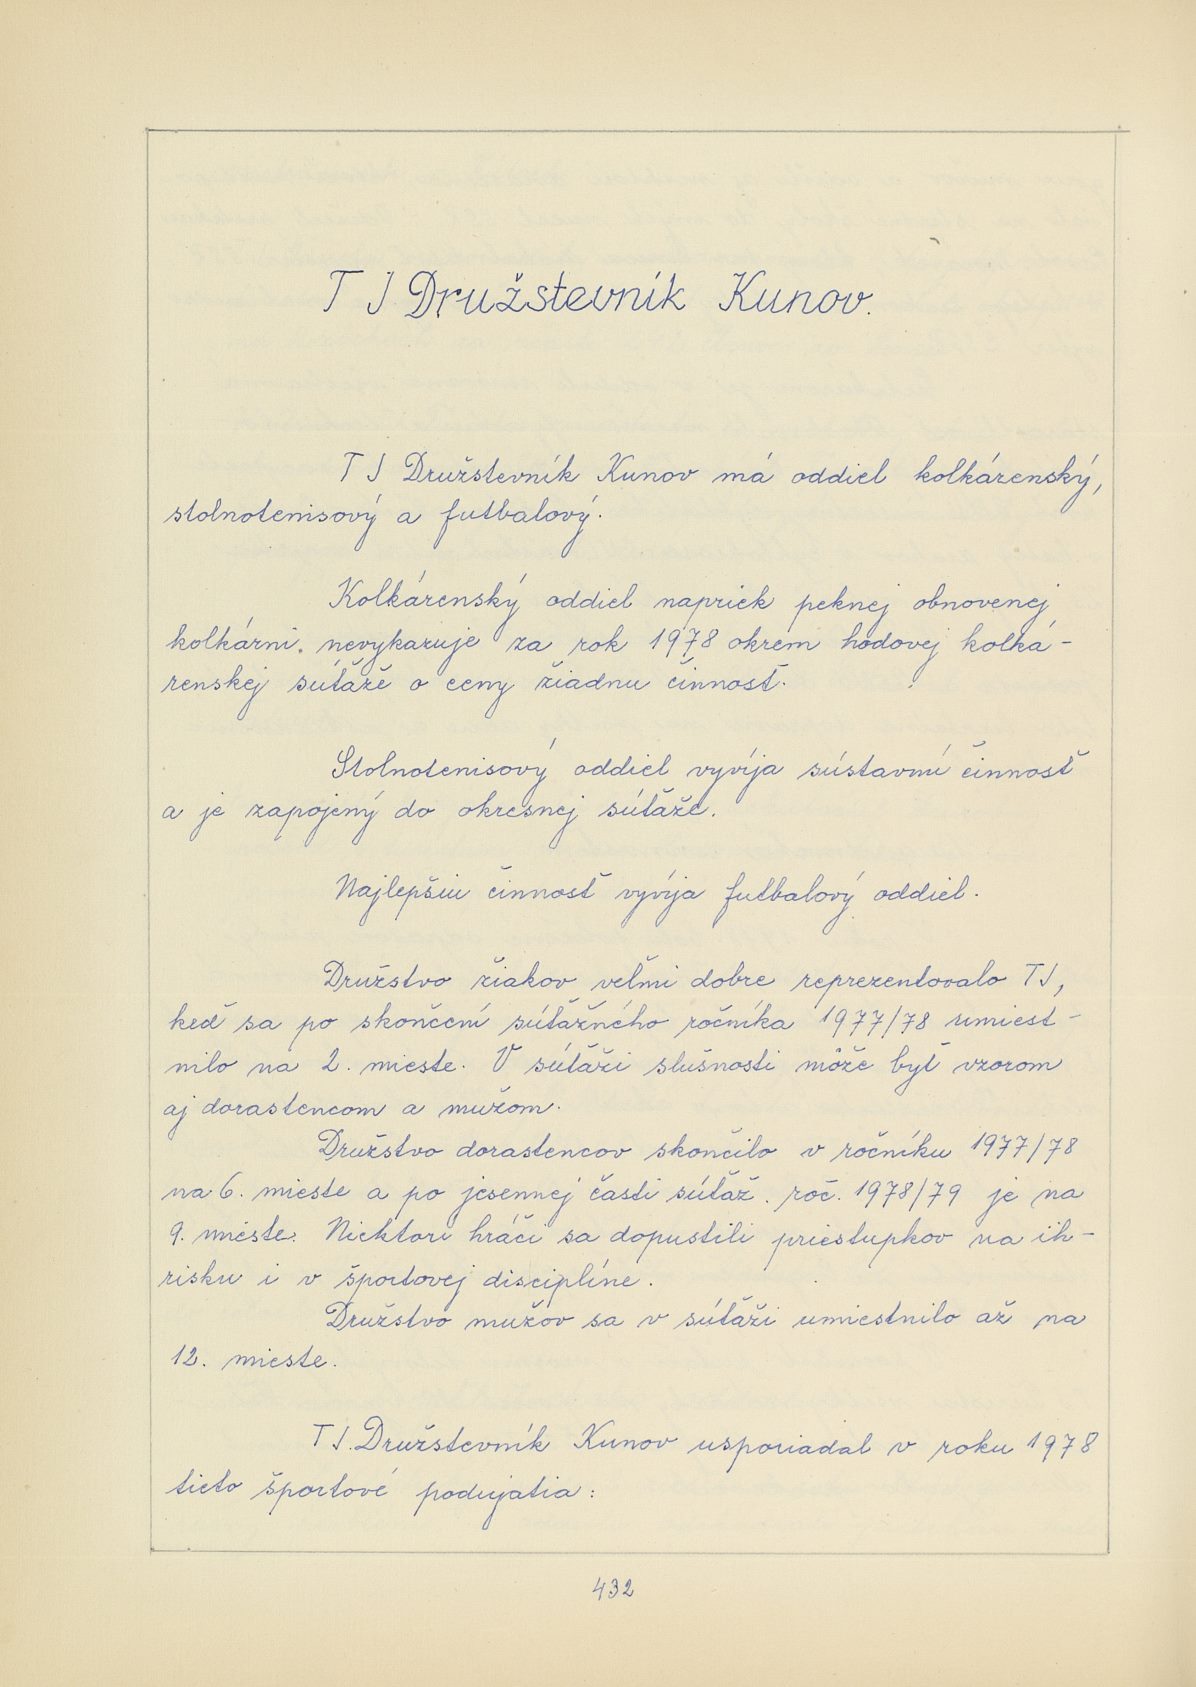 T J Družstevník Kunov.
T J Družstevník Kunov má oddiel kolkárenský,
stolnotenisový a futbalový.
Kolkárenský oddiel napriek peknej obnovenej
kolkárni. nevykazuje za rok 1978 okrem hodovej kolká-
renskej súťaže o ceny žiadnu činnosť.
Stolnotenisový oddiel vyvíja sústavnú činnosť
a je zapojený do okresnej súťaže.
Najlepšiu činnosť vyvíja futbalový oddiel.
Družstvo žiakov veľmi dobre reprezentovalo TJ,
keď sa po skončení súťažného ročníka 1977/78 umiest-
nilo na 2. mieste. V súťaži slušnosti môže byť vzorom
aj dorastencom a mužom.
Družstvo dorastencov skončilo v ročníku 1977/78
na 6. mieste a po jesennej časti súťaž. roč. 1978/79 je na
9. mieste. Niektorí hráči sa dopustili priestupkov na ih-
risku i v športovej disciplíne.
Družstvo mužov sa v súťaži umiestnilo až na
12. mieste.
TJ. Družstevník Kunov usporiadal v roku 1978
tieto športové podujatia:
432